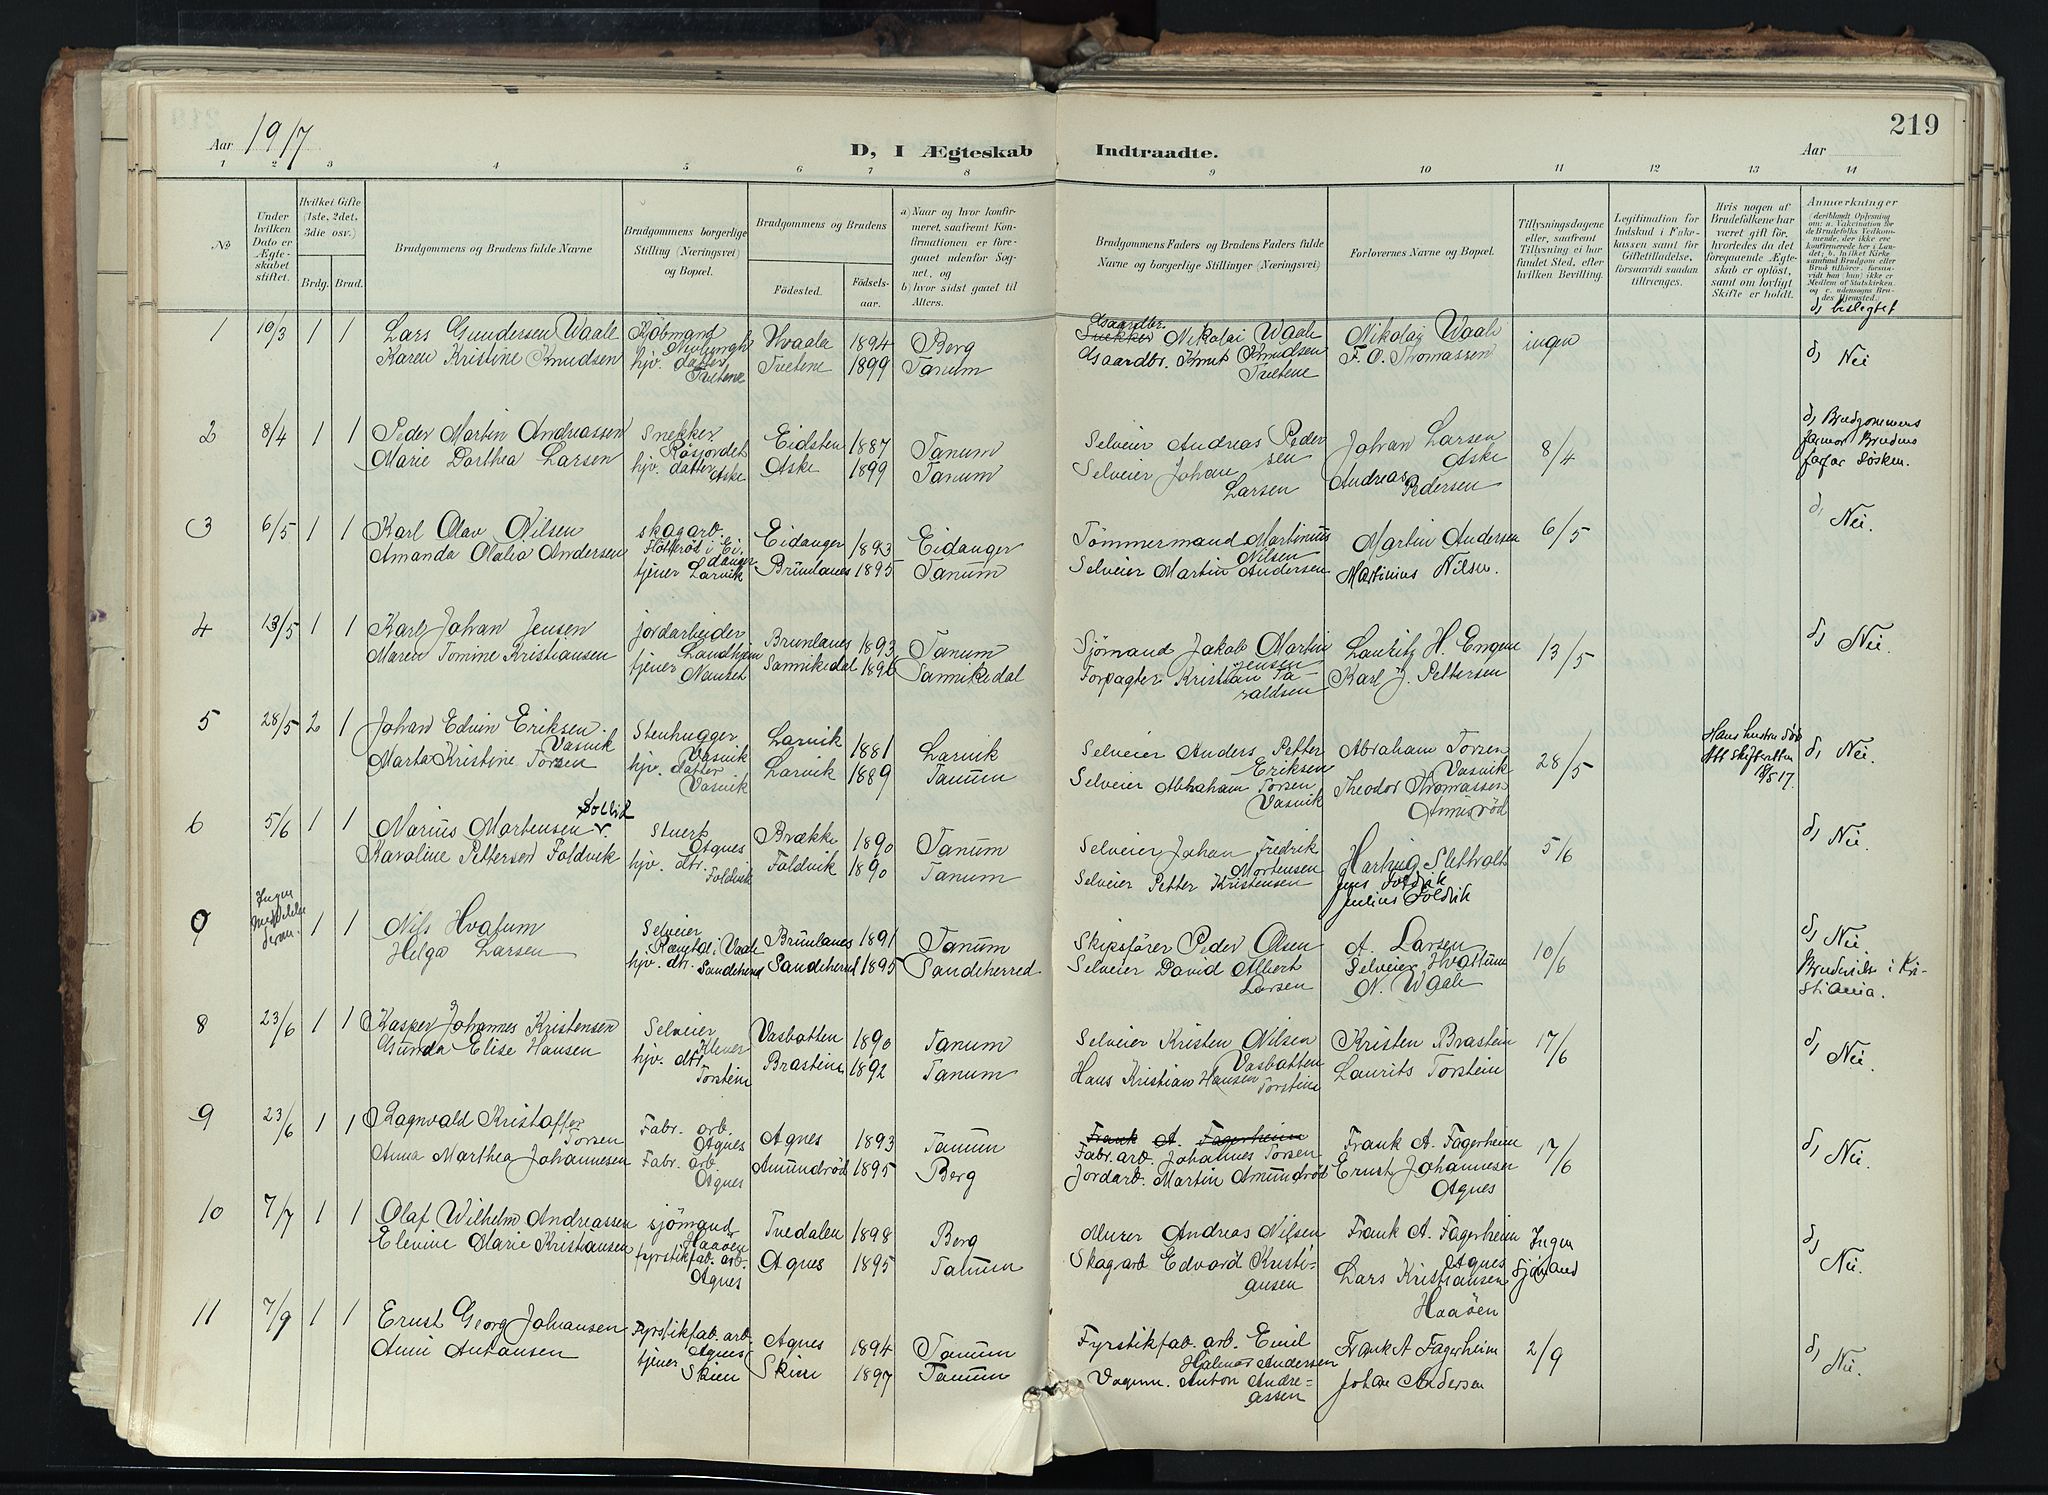 219
Aar 1917
D, I Ægteskab Indtraadte.
Aar
1 2 3 4 5 6 7 8 9 10 11 12 13 14
No
Under hvilken Dato er Ægteskabet stiftet.
Hvilket Gifte (1ste, 2det, 3die osv.)
Brdg. Brud.
Brudgommens og Brudens fulde Navne
Brudgommens borgerlige Stilling (Næringsvei) og Bopæl.
Brudgommens og Brudens
Fødested.
Fødselsaar.
a) Naar og hvor konfirmeret, saafremt Konfirmationen er foregaaet udenfor Sognet, og
b) hvor sidst gaaet til Alters.
Brudgommens Faders og Brudens Faders fulde Navne og borgerlige Stillinger (Næringsvei)
Forlovernes Navne og Bopæl.
Tillysningsdagene eller, saafremt Tillysning ei har fundet Sted, efter hvilken Bevilling.
Legitimation for Indskud i Enkekassen samt for Giftetilladelse, forsaavidt saadan tiltrænges.
Hvis nogen af Brudefolkene har været gift før, hvorledes da det foregaaende Ægteskab er opløst, samt om lovligt Skifte er holdt.
Anmærkninger
d) beslegtet
1 10/3 1 1 Lars Gundersen Waale Kjöbmand Nevlungh Hvaale 1894 Berg Gaardbr. Nikolai Waale Nikolaj Waale ingen d) Nei
Karen Kristine Knudsen hjv. datter Tveitene Tveitene 1899 Tanum Gaardbr. Knut Knudsen Tveitene F. O. Thomassen
2 8/4 1 1 Peder Martin Andreassen Snekker Røsjordet Eidsten 1887 Tanum Selveier Andreas Pedersen Johan Larsen Aske 8/4 d) Brudgommens farmor Brudens farfar Søsken.
Marie Dorthea Larsen hjv. datter Aske Aske 1899 Tanum Selveier Johan Larsen Andreas Pedersen
3 6/5 1 1 Karl Olav Nilsen skogarb. i Eidanger Eidanger 1893 Eidanger Tömmermand Martinius Nilsen Martin Andersen 6/5 d) Nei.
Amanda Otalia Andersen tjener Larvik Brunlanes 1895 Tanum Selveier Martin Andersen Martinius Nilsen.
4 13/5 1 1 Karl Johan Jensen jordarbeider Brunlanes 1893 Tanum Sjømand Jakob Martin Jensen Lauritz H. Engene 13/5 d) Nei.
Maren Tomine Kristiansen tjener Nanset Sannikedal 1896 Sannikedal Forpagter Kristian Taraldsen Karl J. Pettersen
5 28/5 2 1 Johan Edvin Eriksen Vasvik Stenhugger Vasvik Larvik 1881 Larvik Selveier Anders Petter Eriksen Abraham Torsen Vasvik 28/5 Hans hustru død Att skifteretten 18/5 17. d) Nei.
Marta Kristine Torsen hjv. datter Vasvik Larvik 1889 Tanum Selveier Abraham Torsen Vasvik Theodor Thomassen
6 5/6 1 1 Marius Martensen Stuert Agnes Brække 1890 Tanum Selveier Johan Fredrik Mortensen Hartvig Sletholt 5/6 d) Nei.
Karoline Pettersen Foldvik hjv. dtr. Foldvik Foldvik 1890 Tanum Selveier Petter Kristensen Jens Foldvik
Julius Foldvik
7 Ingen Meddelelse 1 1 Nils Hvatum Selveier Brunlanes 1891 Tanum Skipsfører Peder Olsen A. Larsen 10/6 d) Nei
Helga Larsen hjv. dtr. Sandeherred Sandeherred 1895 Sandeherred Selveier David Albert Larsen Selveier Hvattum N. Waale Brudeviet i Kristiania.
8 23/6 1 1 Kasper Johannes Kristensen Selveier Klever Vasbotten 1890 Tanum Selveier Kristen Nilsen Vasbotten Kristen Brastein 17/6 d) Nei.
Gunda Elise Hansen hjv. dtr. Torstein Brastein 1892 Tanum Hans Kristian Hansen Torstein Laurits Torstein
9 23/6 1 1 Ragnvald Kristoffer Torsen Fabr. arb. Agnes Agnes 1893 Tanum Frank A. Fagerheim Fabr. arb. Johannes Torsen Frank A. Fagerheim 17/6 d) Nei.
Anna Marthea Johannesen Fabr. arb. Agnes Amundrød 1895 Berg Jordarb. Martin Amundrød Ernst Johannesen Agnes
10 7/7 1 1 Olaf Wilhelm Andreassen sjömand Haaöen Tvedalen 1898 Berg Murer Andreas Nilsen Frank A. Fagerheim Agnes Ingen Sjömand d) Nei.
Elevine Marie Kristiansen fyrstikfab. arb. Agnes Agnes 1895 Tanum Skogarb Edvard Kristiansen Lars Kristiansen Haaöen
11 7/9 1 1 Ernst Georg Johansen Fyrstikfab. arb. Agnes Agnes 1894 Tanum Fyrstikfab. arb. Emil Halmar Andersen Frank A Fagerheim 2/9 d) Nei.
Anni Antonsen tjener Skien Skien 1897 Tanum Vognm. Anton Andreassen Johan Andersen